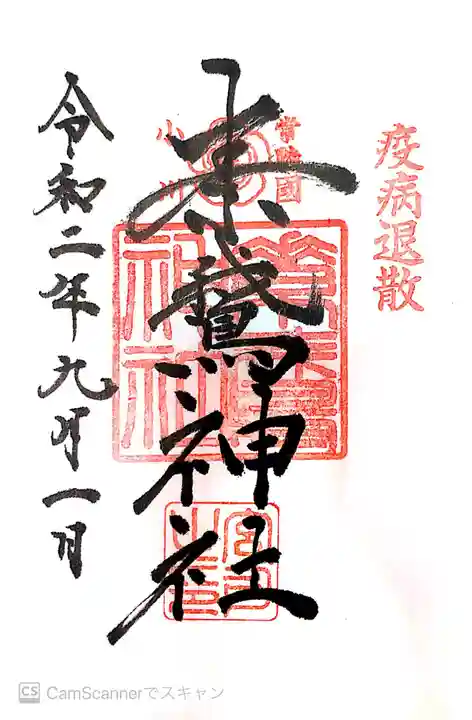 疫病退散
常陸國
小川
素鵞神社
宮司之印
令和二年九月一日
CS CamScannerでスキャン